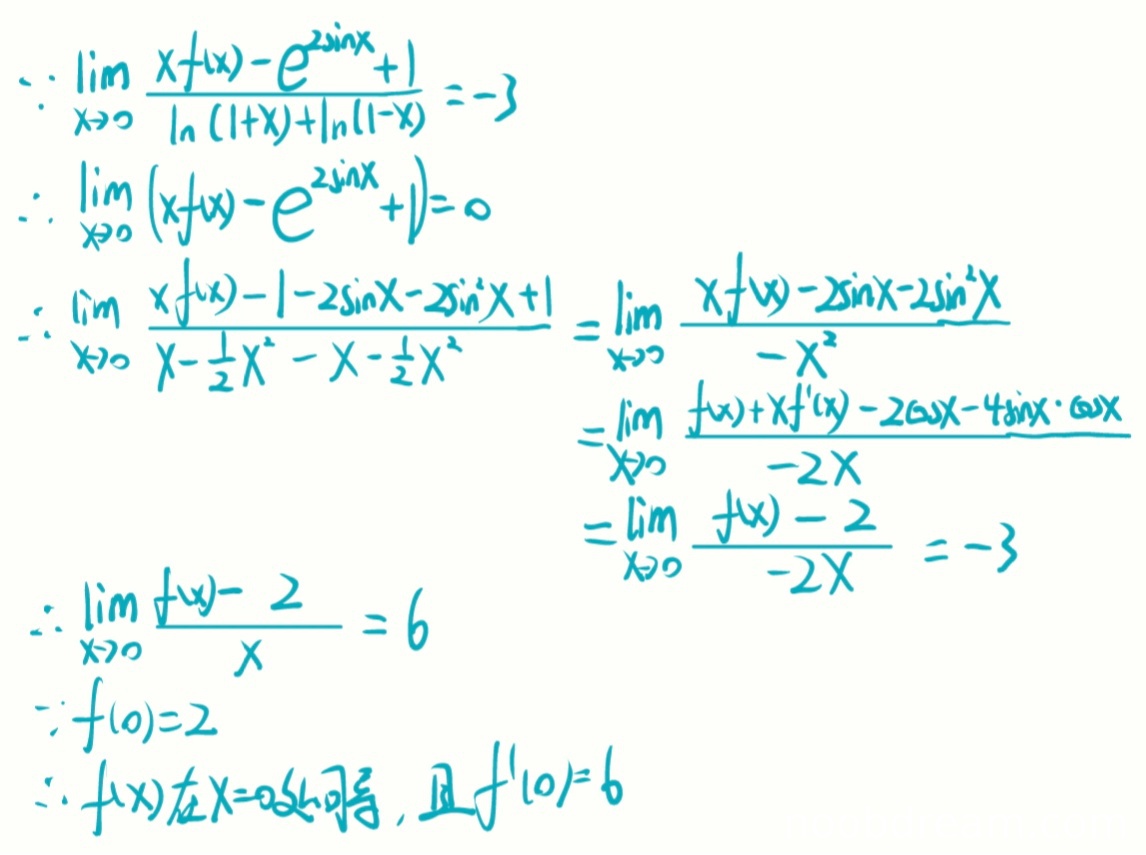 ∵ lim x→0 (xf(x) - e^(2sinx) + 1)/(ln(1+x)+ln(1-x)) = -3
∴ lim x→0 (xf(x) - e^(2sinx) + 1) = 0
∴ lim x→0 (xf(x) - 1 - 2sinx - 2sin²x + 1)/(x - 1/2x² - x - 1/2x²) = lim x→0 (xf(x) - 2sinx - 2sin²x)/(-x²)
= lim x→0 (f(x) + xf'(x) - 2cosx - 4sinx·cosx)/(-2x)
= lim x→0 (f(x) - 2)/(-2x) = -3
∴ lim x→0 (f(x) - 2)/x = 6
∵ f(0)=2
∴ f(x)在x=0处可导,且f'(0)=6